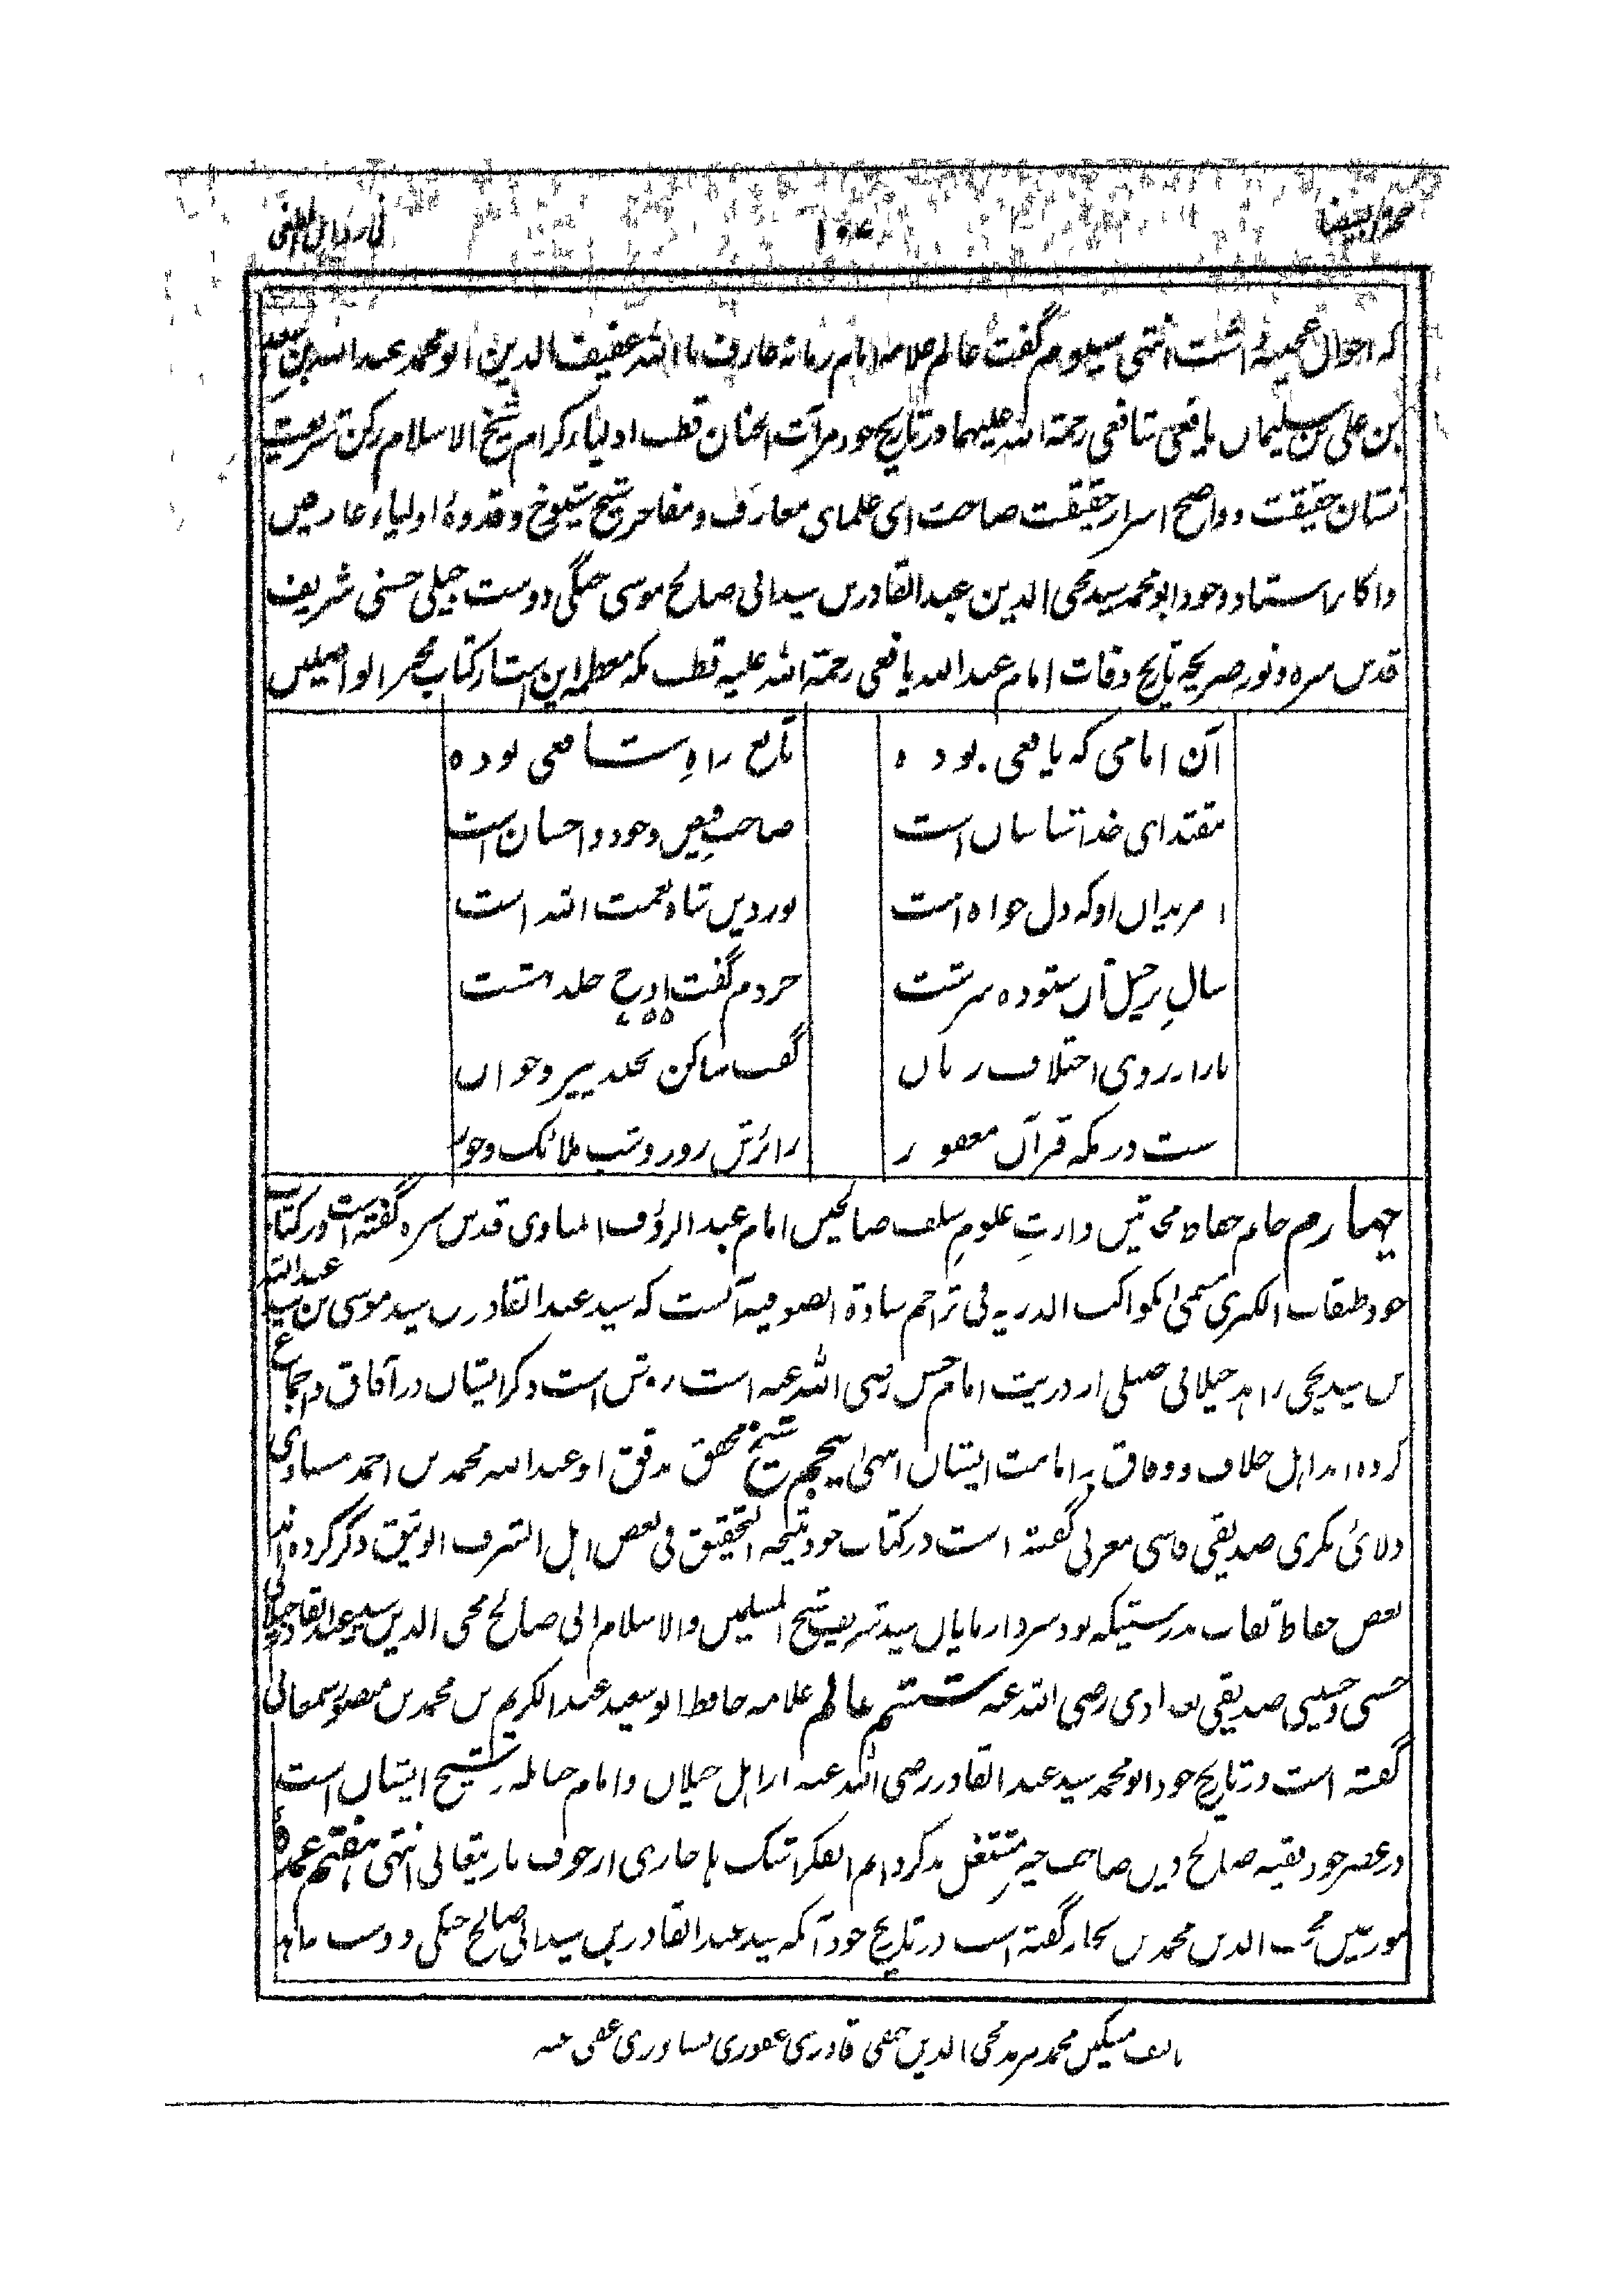 ۱۰۴
که احوال عجیبه داشت انتهی سیوم گفت عالم علامه امام زمانه عارف باالله عفیف الدین ابو محمد عبد الله بن سعد
بن علی بن سلیمان یافعی شافعی رحمة الله علیهما در تاریخ خود مرآت الجنان قطب اولیاء کرام شیخ الاسلام رکن شریعت
نشان حقیقت و واضح اسرار حقیقت صاحت ای علمای معارف و مفاخر شیخ شیوخ و قدوهٔ اولیاء عارفین
و اکابر استاد وجود ابو محمد سید محی الدین عبد القادر بن سید ابی صالح موسی جنگی دوست جیلی حسنی شریف
قدس سره و نور ضریحه تاریخ وفات امام عبد الله یافعی رحمة الله علیه قطب مکه معظمه این است از کتاب مخبر الواصلین
آن امامی که یافعی بوده
تابع راهِ شافعی بوده
مقتدای خدا شناسان است
صاحبِ فیض وجود و احسان است
از مریدان او که دل خواه است
نور دین شاه نعمت الله است
سالِ ترحیل آن ستوده سرشت
خردم گفت اوج خلد بهشت
۷۵۵
باز از روی اختلاف زمان
گفت ساکن بخلد پیر و جوان
ست در مکه قرآن مغفور
زائرش روز و شب ملائک و حور
چهارم امام حفاظ محدثین وارثِ علومِ سلف صالحین امام عبد الرؤف المناوی قدس سره گفته است در کتاب
خود طبقات الکبری مسمی بکواکب الدریه فی تراجم سادة الصوفیه آنست که سید عبد القادر بن سید موسی بن سید عبد الله
بن سید یحی زاهد جیلانی حنبلی از ذریت امام حسن رضی الله عنه است روشن است ذکر ایشان در آفاق و اجماع
کرده اند اهل خلاف و وفاق بر امامت ایشان انتهی پنجم شیخ محقق مدقق ابو عبد الله محمد بن احمد مسناوی
دلائی بکری صدیقی فاسی مغربی گفته است در کتاب خود نتیجه التحقیق فی بعض اهل الشرف الوثیق ذکر کرده اند
بعض حفاظ ثقات بدرستیکه بود سردار مایان سید شریف شیخ المسلمین والاسلام ابی صالح محی الدین سید عبد القادر جیلانی
حسنی و حسینی صدیقی بغدادی رضی الله عنه ششم عالم علامه حافظ ابو سعید عبد الکریم بن محمد بن منصور سمعانی
گفته است در تاریخ خود ابو محمد سید عبد القادر رضی الله عنه از اهل جیلان و امام حنابله و شیخ ایشان است
در عصر خود فقیه صالح دین صاحب خیر مشتغل بذکر دایم الفکر اشک ها جاری از خوف باریتعالی انتهی هفتم عمدهٔ
مورخین محب الدین محمد بن نجار گفته است در تاریخ خود آنکه سید عبد القادر بن سید ابی صالح جنگی دوست زاهد
مسکین محمد میر محی الدین حنفی قادری غفوری پشاوری عفی عنه